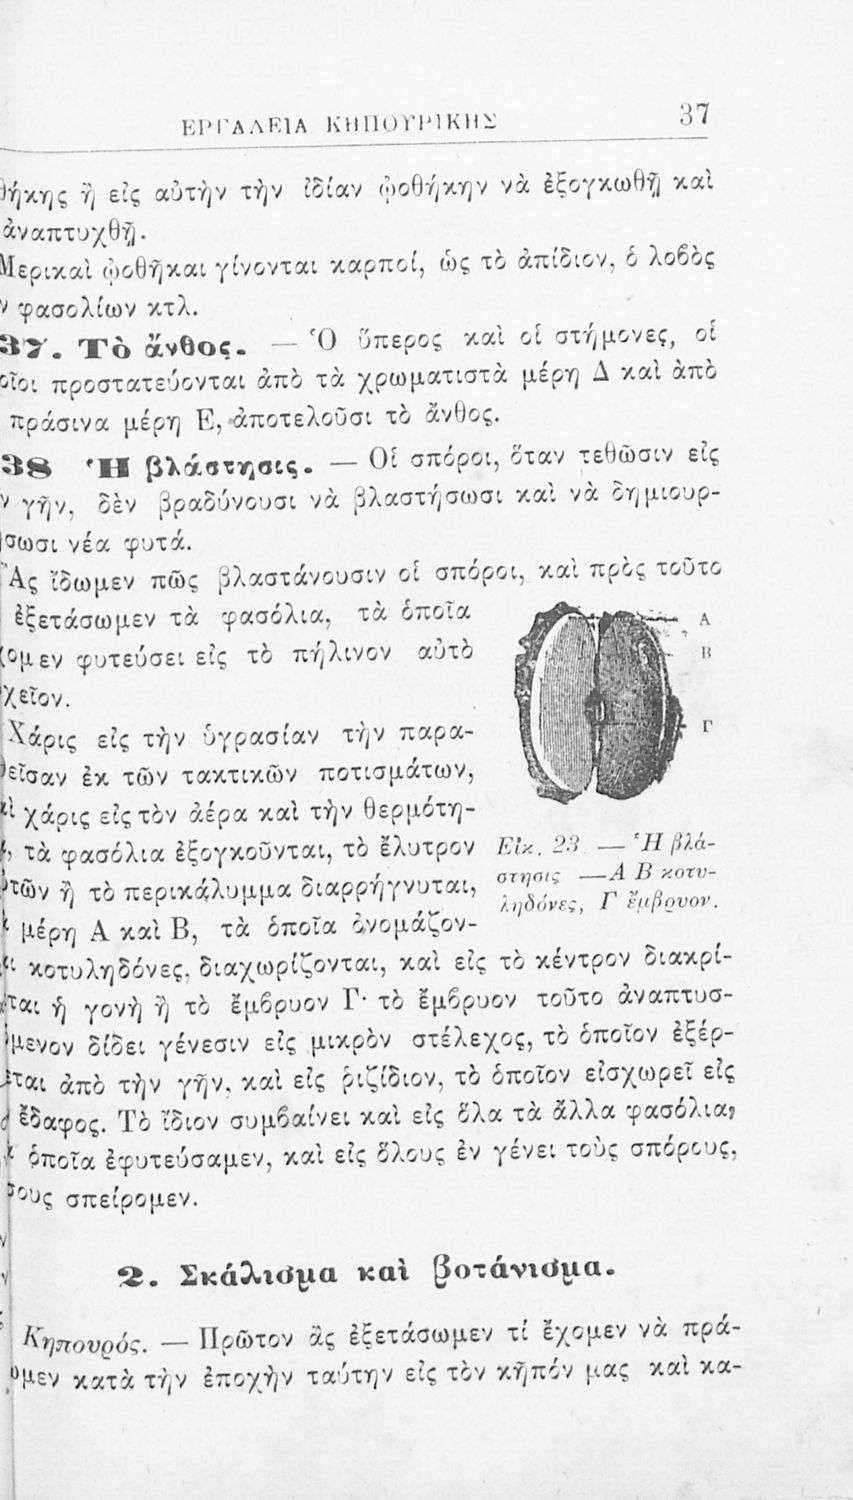 ΕΡΓΑΛΕΙΑ ΚΗΠΟΥΡΙΚΗΣ
37
θήκης ἢ εἰς αὐτὴν τὴν ἰδίαν ᾠοθήκην νὰ ἐξογκωθῇ καὶ
ἀναπτυχθῇ.
Μερικαὶ ᾠοθῆκαι γίνονται καρποί, ὡς τὸ ἀπίδιον, ὁ λοβὸς
ν φασολίων κτλ.
37. Τὸ ἄνθος. — Ὁ ὕπερος καὶ οἱ στήμονες, οἱ
οῖοι προστατεύονται ἀπὸ τὰ χρωματιστὰ μέρη Δ καὶ ἀπὸ
πράσινα μέρη Ε, ἀποτελοῦσι τὸ ἄνθος.
38 Ἡ βλάστησις. — Οἱ σπόροι, ὅταν τεθῶσιν εἰς
ν γῆν, δὲν βραδύνουσι νὰ βλαστήσωσι καὶ νὰ δημιουρ-
σωσι νέα φυτά.
Ἂς ἴδωμεν πῶς βλαστάνουσιν οἱ σπόροι, καὶ πρὸς τοῦτο
ἐξετάσωμεν τὰ φασόλια, τὰ ὁποῖα
χομεν φυτεύσει εἰς τὸ πήλινον αὐτὸ
χεῖον.
Χάρις εἰς τὴν ὑγρασίαν τὴν παρα-
θεῖσαν ἐκ τῶν τακτικῶν ποτισμάτων,
ὶ χάρις εἰς τὸν ἀέρα καὶ τὴν θερμότη-
τὰ φασόλια ἐξογκοῦνται, τὸ ἔλυτρον
τῶν ἢ τὸ περικάλυμμα διαρρήγνυται,
μέρη Α καὶ Β, τὰ ὁποῖα ὀνομάζον-
ι κοτυληδόνες, διαχωρίζονται, καὶ εἰς τὸ κέντρον διακρί-
ται ἡ γονὴ ἢ τὸ ἔμβρυον Γ· τὸ ἔμβρυον τοῦτο ἀναπτυσ-
όμενον δίδει γένεσιν εἰς μικρὸν στέλεχος, τὸ ὁποῖον ἐξέρ-
εται ἀπὸ τὴν γῆν, καὶ εἰς ῥιζίδιον, τὸ ὁποῖον εἰσχωρεῖ εἰς
ἔδαφος. Τὸ ἴδιον συμβαίνει καὶ εἰς ὅλα τὰ ἄλλα φασόλια,
ὁποῖα ἐφυτεύσαμεν, καὶ εἰς ὅλους ἐν γένει τοὺς σπόρους,
σους σπείρομεν.
Α
Β
Γ
Εἰκ. 23. — Ἡ βλά-
στησις — Α Β κοτυ-
ληδόνες, Γ ἔμβρυον.
2. Σκάλισμα καὶ βοτάνισμα.
Κηπουρός. — Πρῶτον ἂς ἐξετάσωμεν τί ἔχομεν νὰ πρά-
ωμεν κατὰ τὴν ἐποχὴν ταύτην εἰς τὸν κῆπόν μας καὶ κα-